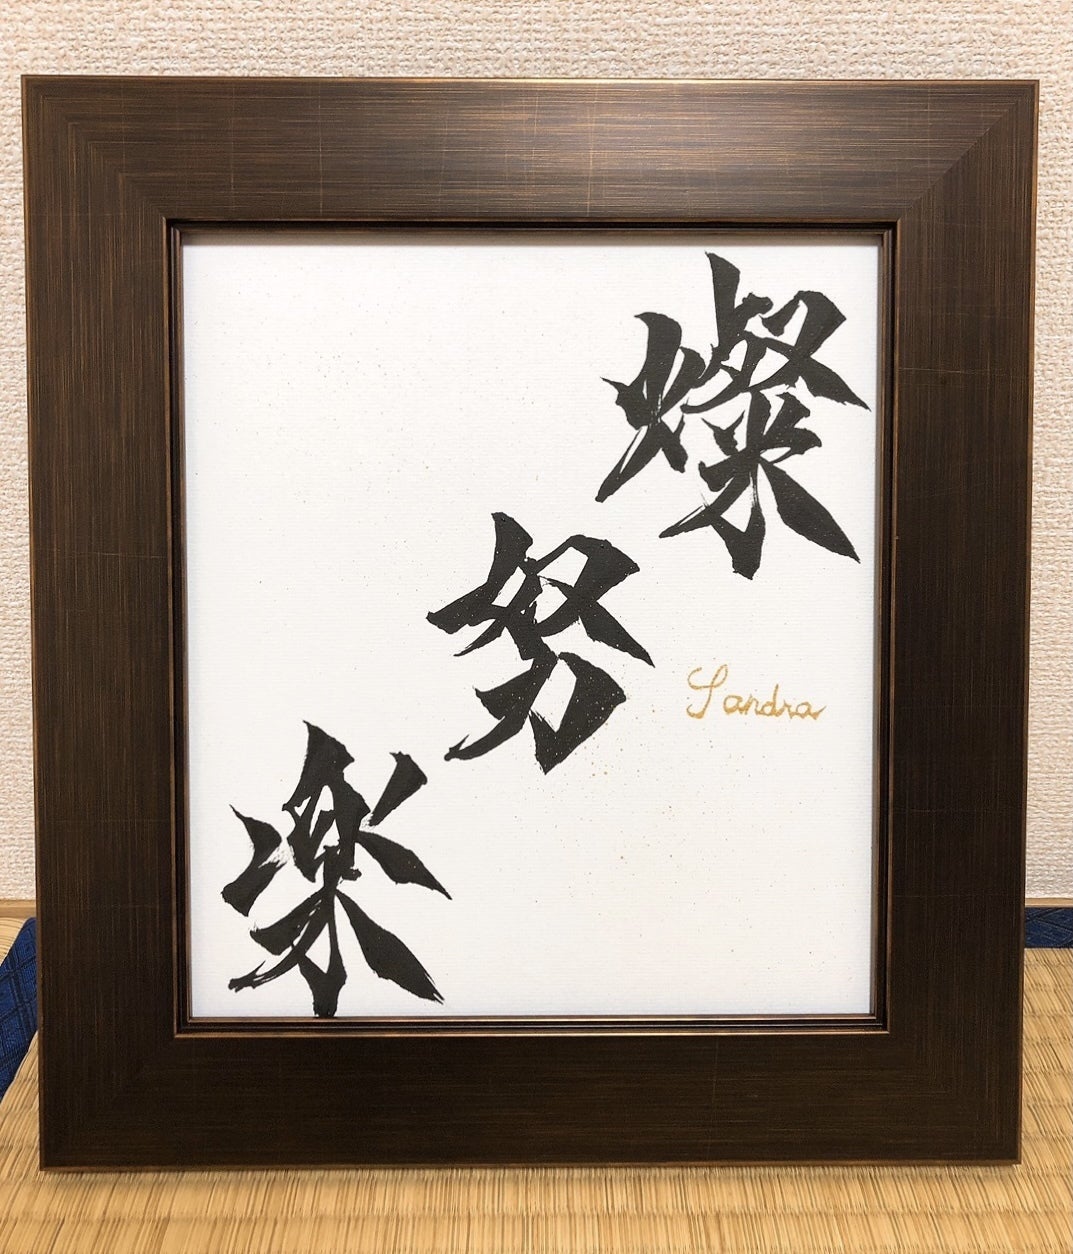 燦
努
楽
Sandra